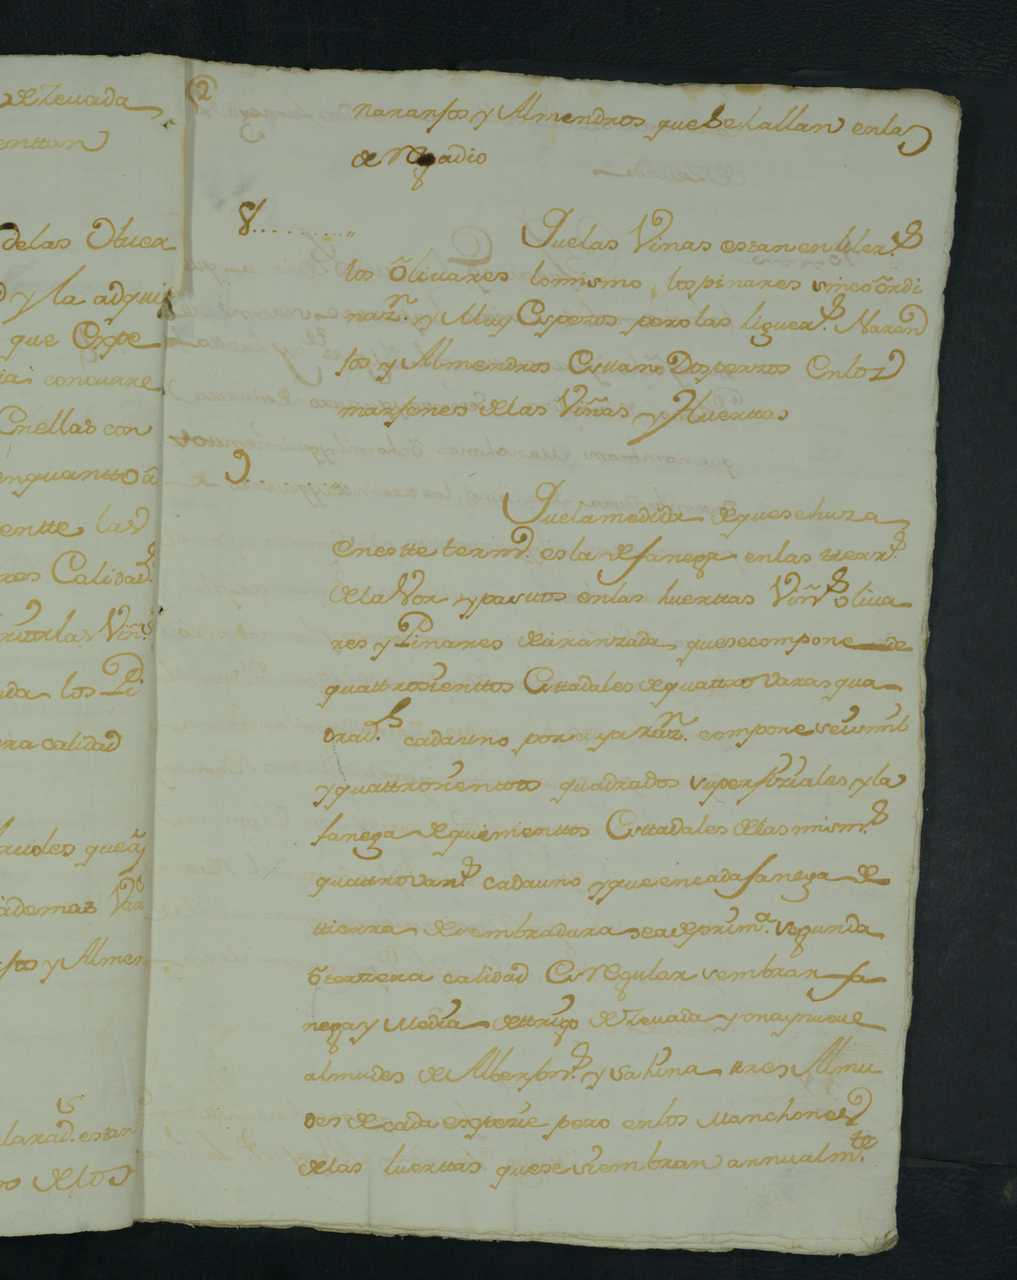 de Zevada
enttan
de las Otuer
d y la adqui
que Expe
ia concurre
Cnellas con
enquantto â
entte las
res Calidad.s
fruttos las Viñ.s
da los Pi
ra calidad
frutales que ay
ademas
sos y Almen
la rad. estan
de los
2
naranjos y Almendros que se hallan en las
de Regadio
8..........
Que las Viñas estan en hiler.s
los Olivares lo mismo, los pinares sin co ordi
naz.n y Muy Espesos pero las higuer.s Naran
jos y Almendros Esttan Dispersos En los
marjenes de las Viñas y Huerttas
9
Que la medida de que se hu sa
en este term.o es la de fanega en las tierr.s
de laVor y pasttos en las huerttas Viñ.s oliva
res y Pinares de aranzada que se compone de
quattrozienttos Esttadales de quattro Varas qua
drad.s cada uno por cuya raz.n compone seis mil
y quattrozientos quadrados superfiziales y la
fanega de quinienttos Esttadales de las mism.s
quattro var.s cada uno y que en cada fanega de
ttierra de sembradura sea de prim.a segunda
o terzera calidad Es rregular sembrar fa
nega y Media de ttrigo de Zevada y ona y nueve
almudes de Alberjon.s y sahina tres Almu
des de cada espezie pero en los Manchones
de las huerttas que se siembran annualm.te